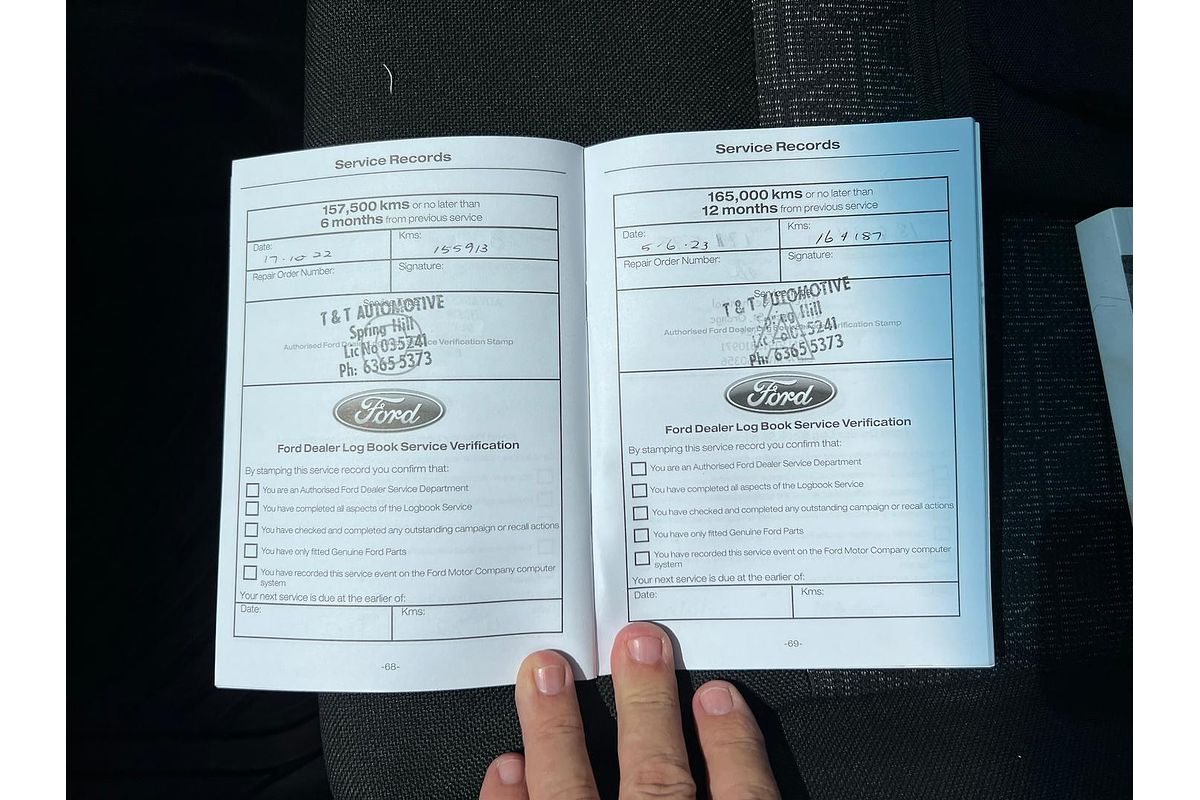 Service Records
157,500 kms or no later than
6 months from previous service
Date:
17.10.22
Kms:
155913
Repair Order Number:
Signature:
T & T AUTOMOTIVE
Spring Hill
Authorised Ford Dealer Log Book Service Verification Stamp
Lic No 035241
Ph: 6365-5373
Ford
Ford Dealer Log Book Service Verification
By stamping this service record you confirm that:
You are an Authorised Ford Dealer Service Department
You have completed all aspects of the Logbook Service
You have checked and completed any outstanding campaign or recall actions
You have only fitted Genuine Ford Parts
You have recorded this service event on the Ford Motor Company computer
system
Your next service is due at the earlier of:
Date:
Kms:
-68-
Service Records
165,000 kms or no later than
12 months from previous service
Date:
5.6.23
Kms:
164187
Repair Order Number:
Signature:
T & T AUTOMOTIVE
Spring Hill
Authorised Ford Dealer Log Book Service Verification Stamp
Lic No 035241
Ph: 6365 5373
Ford
Ford Dealer Log Book Service Verification
By stamping this service record you confirm that:
You are an Authorised Ford Dealer Service Department
You have completed all aspects of the Logbook Service
You have checked and completed any outstanding campaign or recall actions
You have only fitted Genuine Ford Parts
You have recorded this service event on the Ford Motor Company computer
system
Your next service is due at the earlier of:
Date:
Kms:
-69-